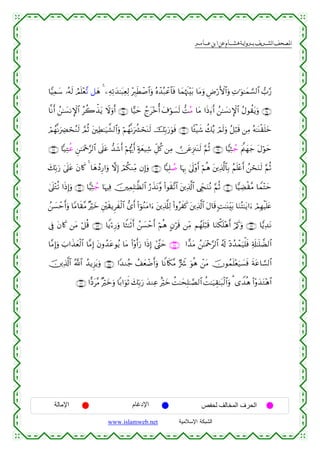 المصحف الشريف برواية هشام عن ابن عامر
رَّبُّ ٱلسَّمَٰوَٰتِ وَٱلۡأَرۡضِ وَمَا بَيۡنَهُمَا فَٱعۡبُدۡهُ وَٱصۡطَبِرۡ لِعِبَٰدَتِهِۦۚ هَل تَّعۡلَمُ لَهُۥ سَمِيّٗا
۝ وَيَقُولُ ٱلۡإِنسَٰنُ أَٰءِذَا مَا مُتُّ لَسَوۡفَ أُخۡرَجُ حَيًّا ۝ أَوَلَا يَذۡكُرُ ٱلۡإِنسَٰنُ أَنَّا
خَلَقۡنَٰهُ مِن قَبۡلُ وَلَمۡ يَكُ شَيۡـٔٗا ۝ فَوَرَبِّكَ لَنَحۡشُرَنَّهُمۡ وَٱلشَّيَٰطِينَ ثُمَّ لَنُحۡضِرَنَّهُمۡ
حَوۡلَ جَهَنَّمَ جُثِيّٗا ۝ ثُمَّ لَنَنزِعَنَّ مِن كُلِّ شِيعَةٍ أَيُّهُمۡ أَشَدُّ عَلَى ٱلرَّحۡمَٰنِ عُتِيّٗا ۝
ثُمَّ لَنَحۡنُ أَعۡلَمُ بِٱلَّذِينَ هُمۡ أَوۡلَىٰ بِهَا صُلِيّٗا ۝ وَإِن مِّنكُمۡ إِلَّا وَارِدُهَاۚ كَانَ عَلَىٰ رَبِّكَ
حَتۡمٗا مَّقۡضِيّٗا ۝ ثُمَّ نُنَجِّي ٱلَّذِينَ ٱتَّقَواْ وَّنَذَرُ ٱلظَّٰلِمِينَ فِيهَا جُثِيّٗا ۝ وَإِذَا تُتۡلَىٰ
عَلَيۡهِمۡ ءَايَٰتُنَا بَيِّنَٰتٖ قَالَ ٱلَّذِينَ كَفَرُواْ لِلَّذِينَ ءَامَنُوٓاْ أَيُّ ٱلۡفَرِيقَيۡنِ خَيۡرٞ مَّقَامٗا وَأَحۡسَنُ
نَدِيّٗا ۝ وَكَمۡ أَهۡلَكۡنَا قَبۡلَهُم مِّن قَرۡنٍ هُمۡ أَحۡسَنُ أَثَٰثٗا وَرِءۡيٗا ۝ قُلۡ مَن كَانَ فِي
ٱلضَّلَٰلَةِ فَلۡيَمۡدُدۡ لَهُ ٱلرَّحۡمَٰنُ مَدًّا ۝ حَتَّىٰٓ إِذَا رَأَوۡاْ مَا يُوعَدُونَ إِمَّا ٱلۡعَذَابَ وَإِمَّا
ٱلسَّاعَةَ فَسَيَعۡلَمُونَ مَنۡ هُوَ شَرّٞ مَّكَانٗا وَأَضۡعَفُ جُندٗا ۝ وَيَزِيدُ ٱللَّهُ ٱلَّذِينَ
ٱهۡتَدَوۡاْ هُدٗىۗ وَٱلۡبَٰقِيَٰتُ ٱلصَّٰلِحَٰتُ خَيۡرٌ عِندَ رَبِّكَ ثَوَابٗا وَخَيۡرٞ مَّرَدًّا ۝
الحرف المخالف لحفص الإدغام الإمالة
الشبكة الإسلامية www.islamweb.net